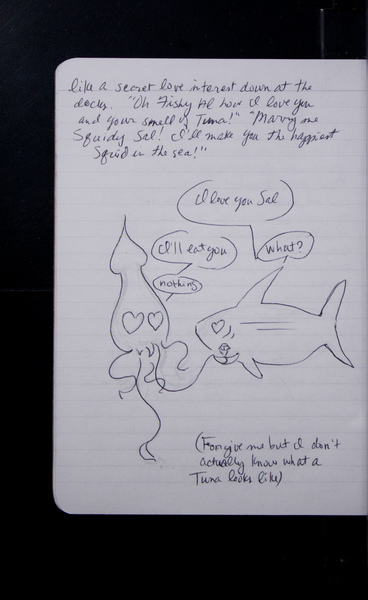 like a secret love interest down at the
docks. "Oh Fishy Al how I love you
and your smell of Tuna!" "Marry me
Squidy Sal! I'll make you the happiest
Squid in the sea!"
I love you Sal
I'll eat you
what?
nothing
(Forgive me but I don't
actually know what a
Tuna looks like)